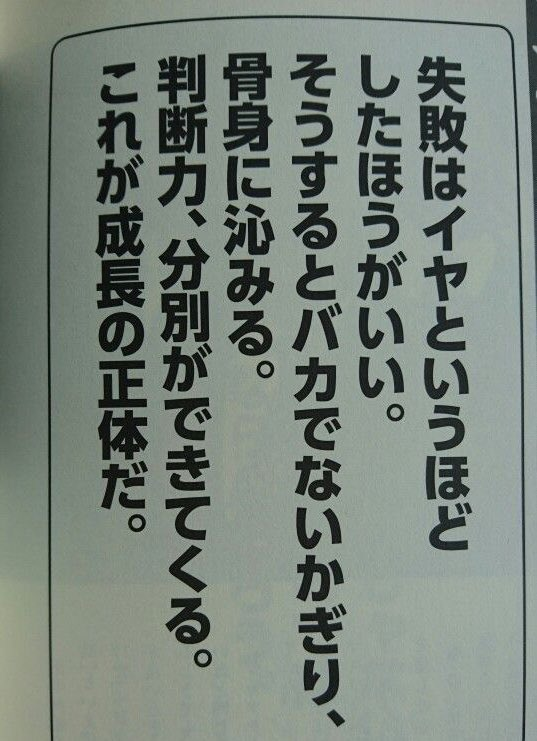 失敗はイヤというほど
したほうがいい。
そうするとバカでないかぎり、
骨身に沁みる。
判断力、分別ができてくる。
これが成長の正体だ。